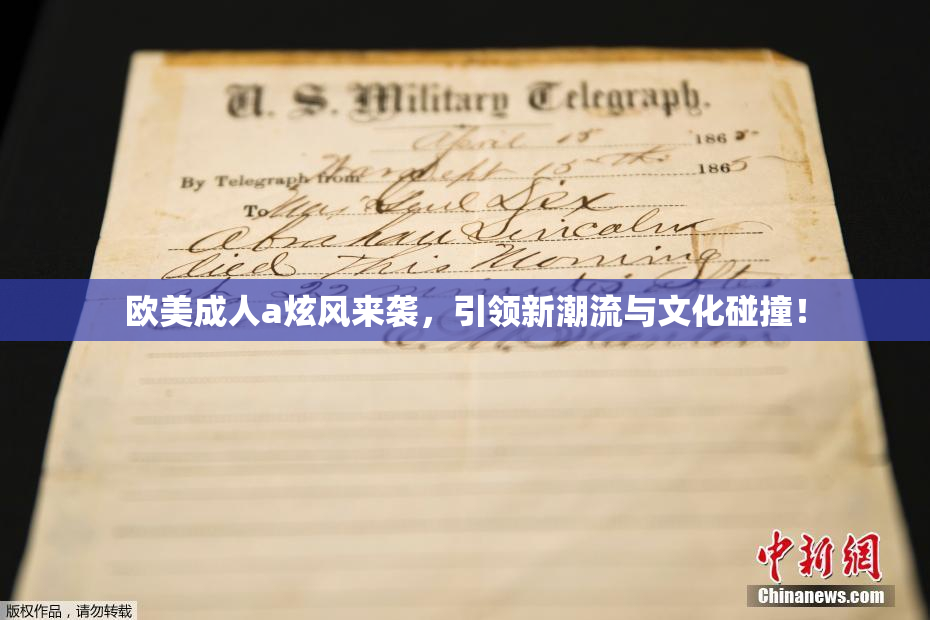 U. S. Military Telegraph.
April 15 1865
By Telegraph from War Dept 15th 1865
To Maj Genl Dix
Abraham Lincoln
died This Morning
at 22 minutes after
欧美成人a炫风来袭，引领新潮流与文化碰撞！
E. M. Stanton
中新网
Chinanews.com
版权作品，请勿转载